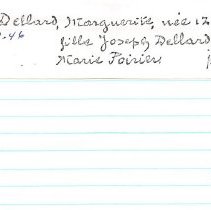 Dellard, Marguerite, née 12
-46 fille Joseph Dellard
Marie Poirier